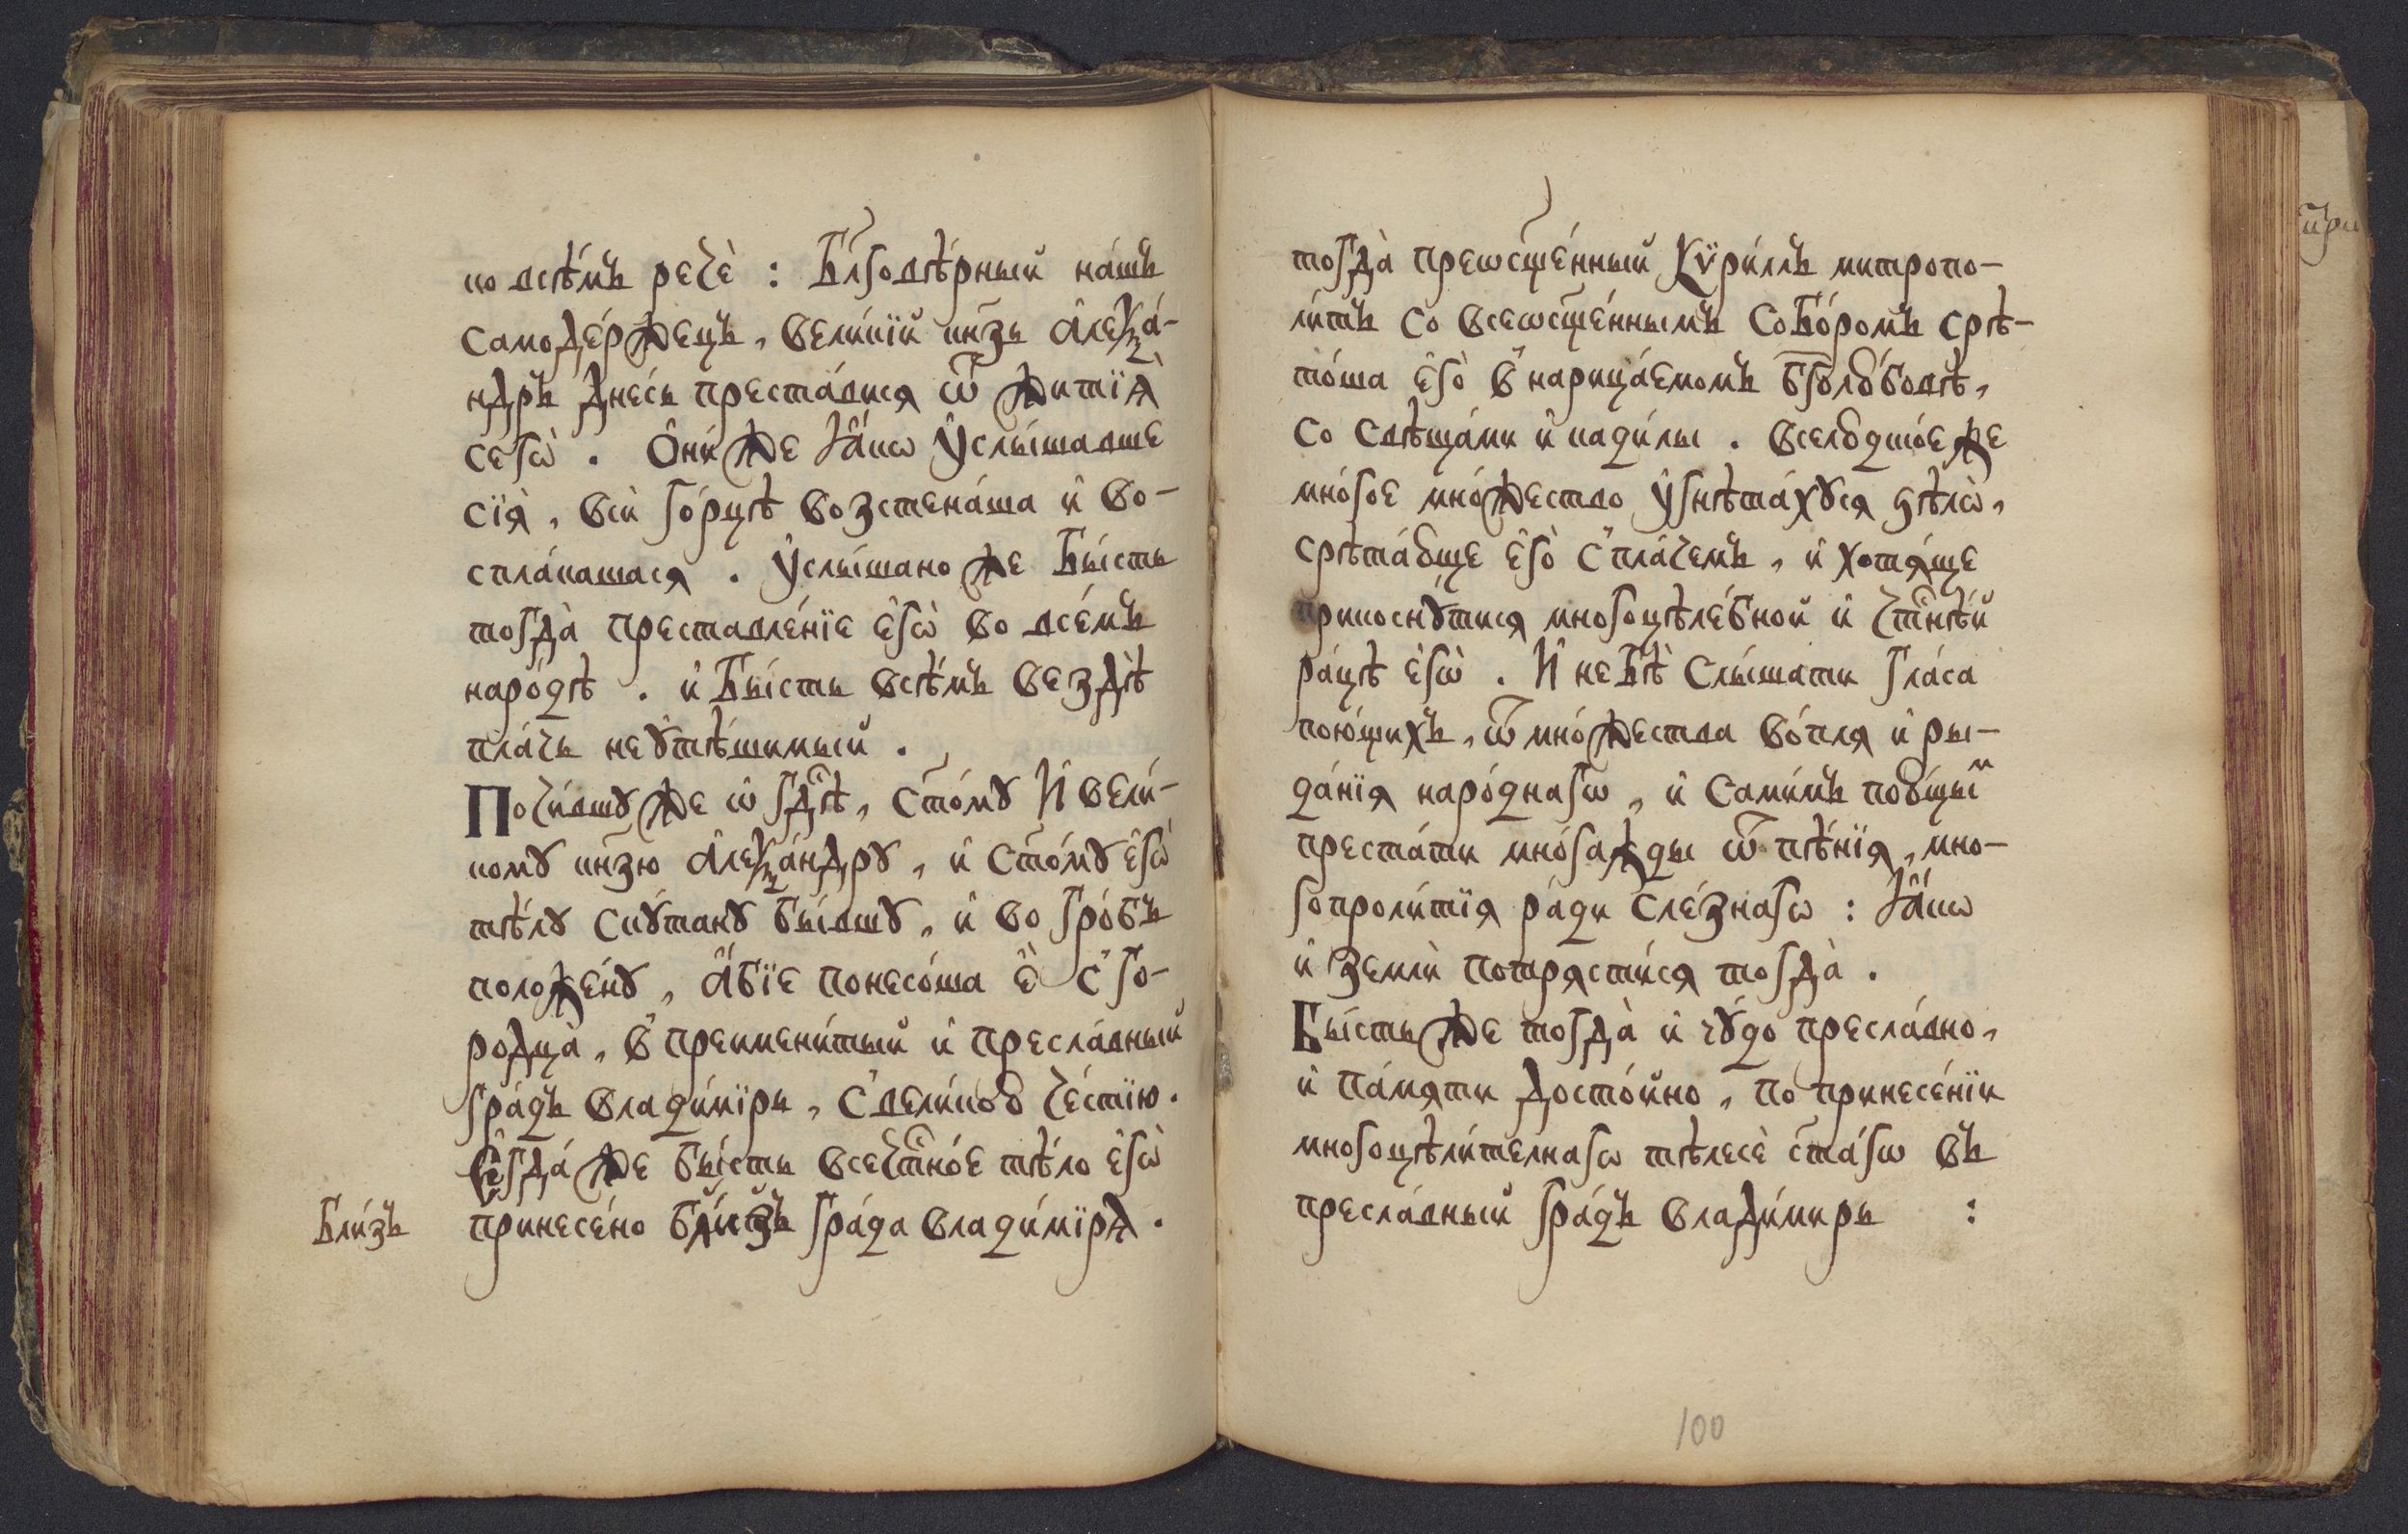 ко всѣ́мъ речѐ : Бл҃говѣ́рный на́шъ
самоде́ржецъ, вели́кїй кн҃зь а҆леѯа́-
ндръ дне́сь преста́вися ѿ житїѧ̀
сегѡ̀ . Ѻ҆ни́ же ꙗ҆́кѡ ᲂу҆слы́шавше
сїѧ̀, всѝ го́рцѣ возстена́ша и҆ во-
спла́кашася . ᲂу҆слы́шано же бы́сть
тогда̀ преставле́нїе є҆гѡ̀ во все́мъ
наро́дѣ . и҆ бы́сть всѣ́мъ вездѣ̀
пла́чь неꙋтѣ́шимый .
Почи́вшꙋ же ѡ҆ гд҇ѣ, ст҃о́мꙋ и҆ вели́-
комꙋ кн҃зю а҆леѯа́ндрꙋ, и҆ ст҃о́мꙋ є҆гѡ̀
тѣ́лꙋ скꙋтанꙋ бы́вшꙋ, и҆ во гро́бъ
положе́нꙋ, а҆́бїе понесо́ша є҆̀ с̾ го-
родца̀, в̾ преимени́тый и҆ пресла́вный
гра́дъ влади́мїръ, с̾вели́кою че́стїю.
Є҆гда́ же бы́сть всечⷭ҇тно́е тѣ́ло є҆гѡ̀
Бли́зъ принесе́но бли́зъ гра́да влади́мїрѧ .
тогда̀ преѡсщ҃е́нный Кѷри́ллъ митропо-
ли́тъ со всеѡсщ҃е́ннымъ собо́ромъ срѣ-
то́ша є҆го̀ в̾ нарица́емомъ бг҃олю́бовѣ,
со свѣща́ми и҆ кади́лы . вселю́дтое же
мно́гое мно́жество ᲂу҆гнѣта́хꙋся ѕѣлѡ̀,
срѣта́юще є҆го̀ с̾ пла́чемъ, и҆ хотѧ́ще
прикоснꙋ́тися многоцѣле́бной и҆ чⷭ҇тнѣ́й
ра́цѣ є҆гѡ̀ . И҆ не бѣ̀ слы́шати гла́са
пою́щихъ, ѿ мно́жества во́пля и҆ ры-
да́нїя наро́днагѡ, и҆ сами́мъ пою́щыⷨ
преста́ти мно́гажды ѿ пѣ́нїя, мно-
гопроли́тїя ра́ди сле́знагѡ : ꙗ҆́кѡ
и҆ землѝ потрясти́ся тогда̀ .
Бы́сть же тогда̀ и҆ чꙋ́до пресла́вно,
и҆ па́мяти досто́йно, по принесе́нїи
многоцѣли́телнагѡ тѣлесѐ ст҃а́гѡ въ
пресла́вный гра́дъ влади́миръ :
100